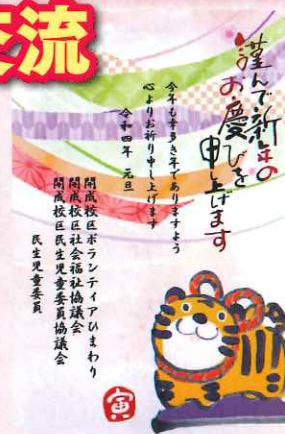 交流
謹んで新年の
お慶びを
申し上げます
今年も幸多き年でありますよう
心よりお祈り申し上げます
令和四年 元旦
開成校区ボランティアひまわり
開成校区社会福祉協議会
開成校区民生児童委員協議会
民生児童委員
寅